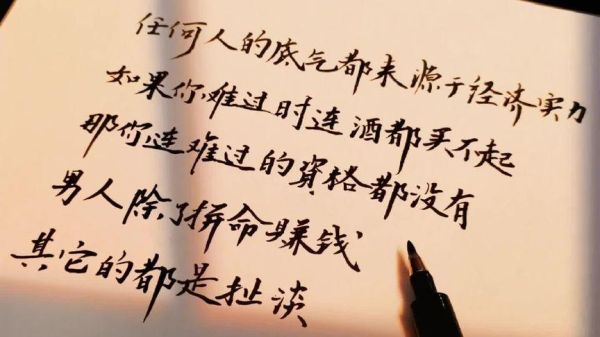 任何人的底气都来源于经济实力
如果你难过时连酒都买不起
那你连难过的資格都没有
男人除了拼命赚钱
其它的都是扯淡